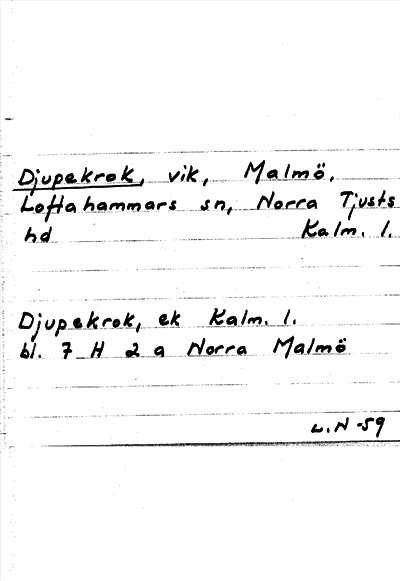 Djupekrok, vik, Malmö,
Loftahammars sn, Norra Tjusts
hd Kalm. l.
Djupekrok, ek Kalm. l.
bl. 7 H 2 a Norra Malmö
L.N -59